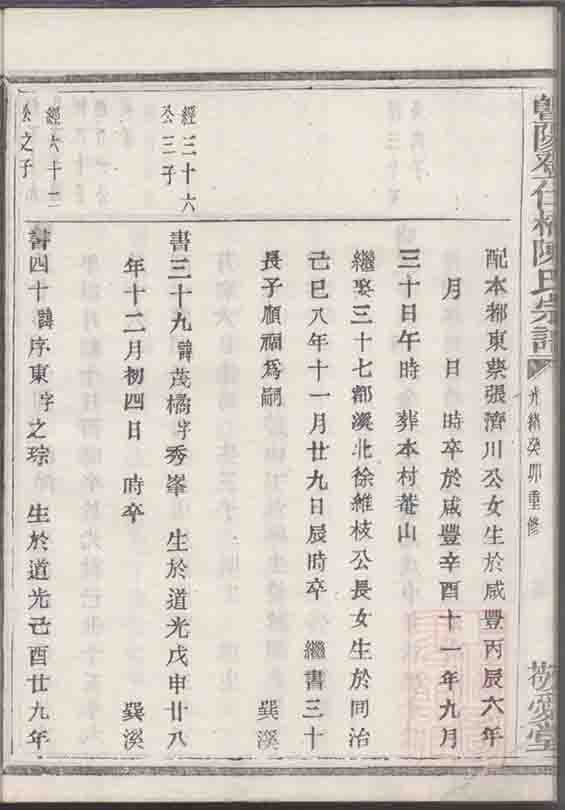 暨陽 任橋陳氏宗譜
光緒癸卯重修
敬愛堂
配本都東蔡張濟川公女生於咸豐丙辰六年
月 日 時卒於咸豐辛酉十一年九月
三十日午時 葬本村菴山
繼娶三十七都溪北徐維枝公長女生於同治
己巳八年十一月廿九日辰時卒 繼書三十
長子順福爲嗣 巽溪
經三十六
公三子
書三十九諱茂橘字秀峯 生於道光戊申廿八
年十二月初四日 時卒 巽溪
經六十二
公之子
書四十諱序東字之琮 生於道光己酉廿九年